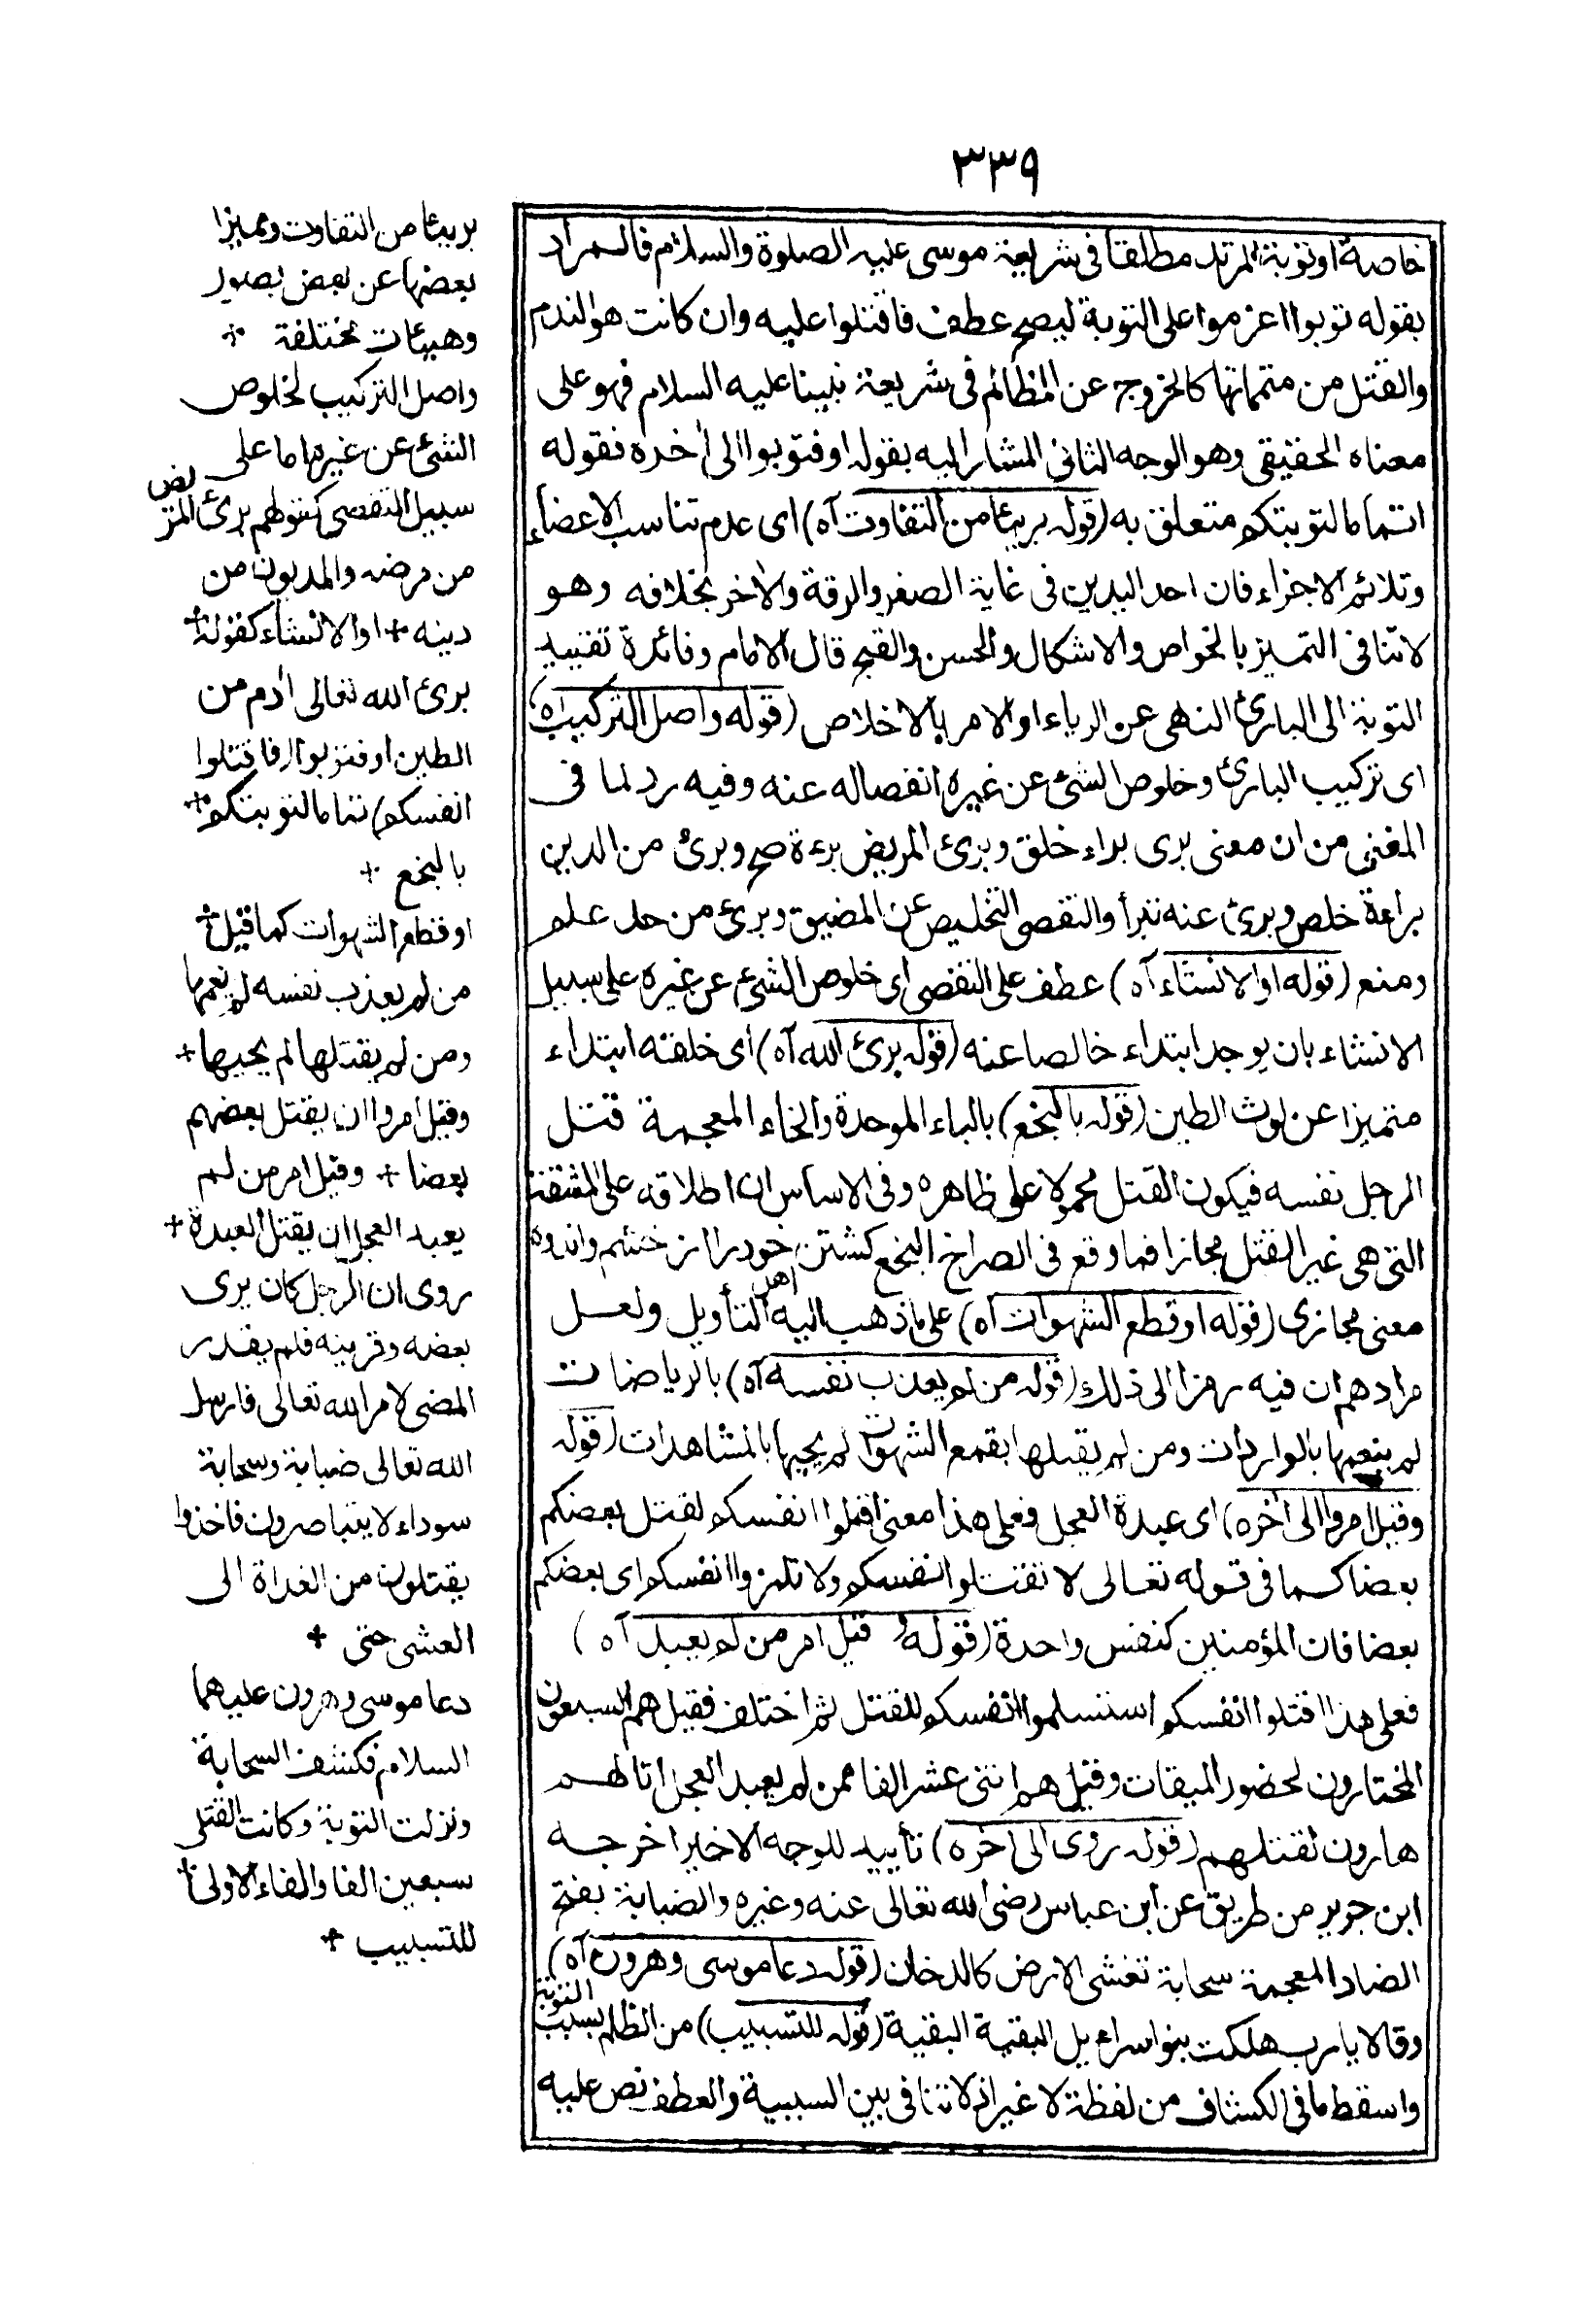 ٣٣٩
خاصة او توبة المرتد مطلقا فى شريعة موسى عليه الصلوة والسلام فالمراد
بقوله توبوا اعزموا على التوبة ليصح عطف فاقتلوا عليه وان كانت هو الندم
والقتل من متمماتها كالخروج عن المظالم فى شريعة نبينا عليه السلام فهو على
معناه الحقيقى وهو الوجه الثانى المشار اليه بقوله او فتوبوا الى اخره فقوله
اتماما لتوبتكم متعلق به (قوله بريئا من التفاوت آه) اى عدم تناسب الاعضاء
وتلائم الاجزاء فان احد اليدين فى غاية الصغر والرقة والاخر بخلافه وهو
لا تنافى التميز بالخواص والاشكال والحسن والقبح قال الامام وفائدة تقييد
التوبة الى البارئ النهى عن الرياء او الامر بالاخلاص (قوله واصل التركيب آه)
اى تركيب البارئ وخلوص الشئ عن غيره انفصاله عنه وفيه رد لما فى
المغنى من ان معنى برى براء خلق وبرئ المريض برءة صح وبرئ من الدين
براءة خلص وبرئ عنه تبرأ والتفصى التخليص عن المضيق وبرئ من حد علم
ومنع (قوله او الانشاء آه) عطف على التفصى اى خلوص الشئ عن غيره على سبيل
الانشاء بان يوجد ابتداء خالصا عنه (قوله برئ الله آه) اى خلقته ابتداء
متميزا عن لوث الطين (قوله بالبخع) بالباء الموحدة والخاء المعجمة قتل
الرجل نفسه فيكون القتل محمولا على ظاهره وفى الاساس ان اطلاقه على المشقة
التى هى غير القتل مجازا فما وقع فى الصراح البخع كشتن خود را از خشم واندوه
معنى مجازى (قوله او قطع الشهوات آه) على ما ذهب اليه اهل التأويل ولعل
مرادهم ان فيه رمزا الى ذلك (قوله من لم يعذب نفسه آه) بالرياضات
لم ينعمها بالواردات ومن لم يقتلها بقمع الشهوات لم يحيها بالمشاهدات (قوله
وقيل امروا الى اخره) اى عبدة العجل فعلى هذا معنى اقتلوا انفسكم لقتل بعضكم
بعضا كما فى قوله تعالى لا تقتلوا انفسكم ولا تلمزوا انفسكم اى بعضكم
بعضا فان المؤمنين كنفس واحدة (قوله و قيل امر من لم يعبد آه)
فعلى هذا اقتلوا انفسكم استسلموا انفسكم للقتل ثم اختلف فقيل هم السبعون
المختارون لحضور الميقات وقيل هم اثنى عشر الفا ممن لم يعبد العجل اتا لهم
هارون لقتلهم (قوله روى الى اخره) تأييد للوجه الاخير اخرجه
ابن جرير من طريق عن ابن عباس رضى الله تعالى عنه وغيره والضبابة بفتح
الضاد المعجمة سحابة تغشى الارض كالدخان (قوله دعا موسى وهرون آه)
وقالا يا رب هلكت بنو اسراءيل البقية البقية (قوله للتسبيب) من الظلم بسبب التوبة
واسقط ما فى الكشاف من لفظة لا غير اذ لا تنافى بين السببية والعطف نص عليه
بريئا من التفاوت ومميزا
بعضها عن بعض بصور
وهيئات مختلفة +
واصل التركيب لخلوص
الشئ عن غيره اما على
سبيل التفصى كقولهم برئ المريض
من مرضه والمديون من
دينه + او الانشاء كقوله +
برئ الله تعالى ادم من
الطين او فتوبوا (فاقتلوا
انفسكم) تماما لتوبتكم +
بالبخع +
او قطع الشهوات كما قيل +
من لم يعذب نفسه لم ينعمها
ومن لم يقتلها لم يحيها +
وقيل امروا ان يقتل بعضهم
بعضا + وقيل امر من لم
يعبد العجل ان يقتل العبدة +
روى ان الرجل كان يرى
بعضه وقرينه فلم يقدر
المضى لامر الله تعالى فارسل
الله تعالى ضبابة وسحابة
سوداء لا يتباصرون فاخذوا
يقتلون من الغداة الى
العشى حتى +
دعا موسى وهرون عليهما
السلام فكشف السحابة
ونزلت التوبة وكانت القتلى
سبعين الفا والفاء الاولى +
للتسبيب +